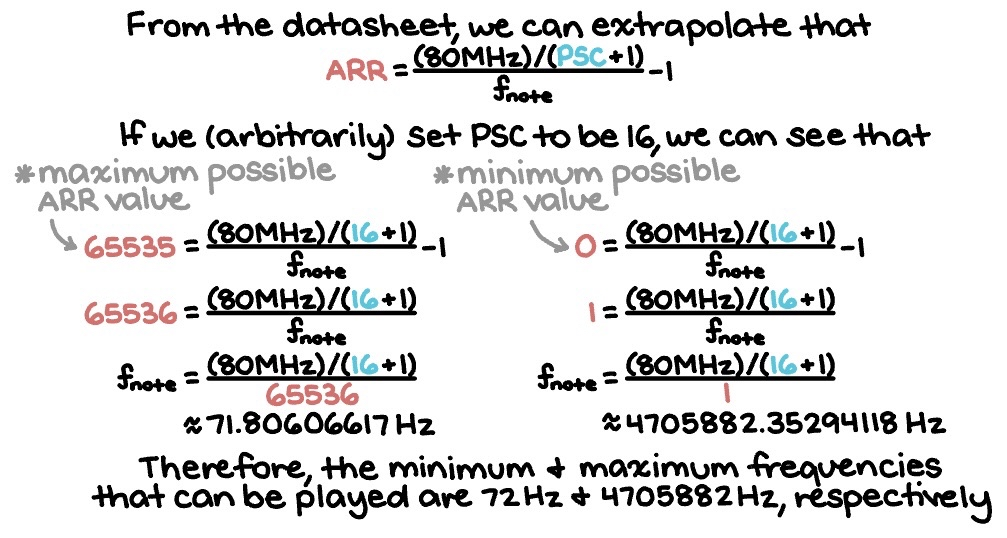 From the datasheet, we can extrapolate that
ARR = (80MHz)/(PSC+1) / fnote -1
If we (arbitrarily) set PSC to be 16, we can see that
*maximum possible ARR value
65535 = (80MHz)/(16+1) / fnote -1
65536 = (80MHz)/(16+1) / fnote
fnote = (80MHz)/(16+1) / 65536
≈71.80606617 Hz
*minimum possible ARR value
0 = (80MHz)/(16+1) / fnote -1
1 = (80MHz)/(16+1) / fnote
fnote = (80MHz)/(16+1) / 1
≈4705882.35294118 Hz
Therefore, the minimum & maximum frequencies
that can be played are 72Hz & 4705882Hz, respectively